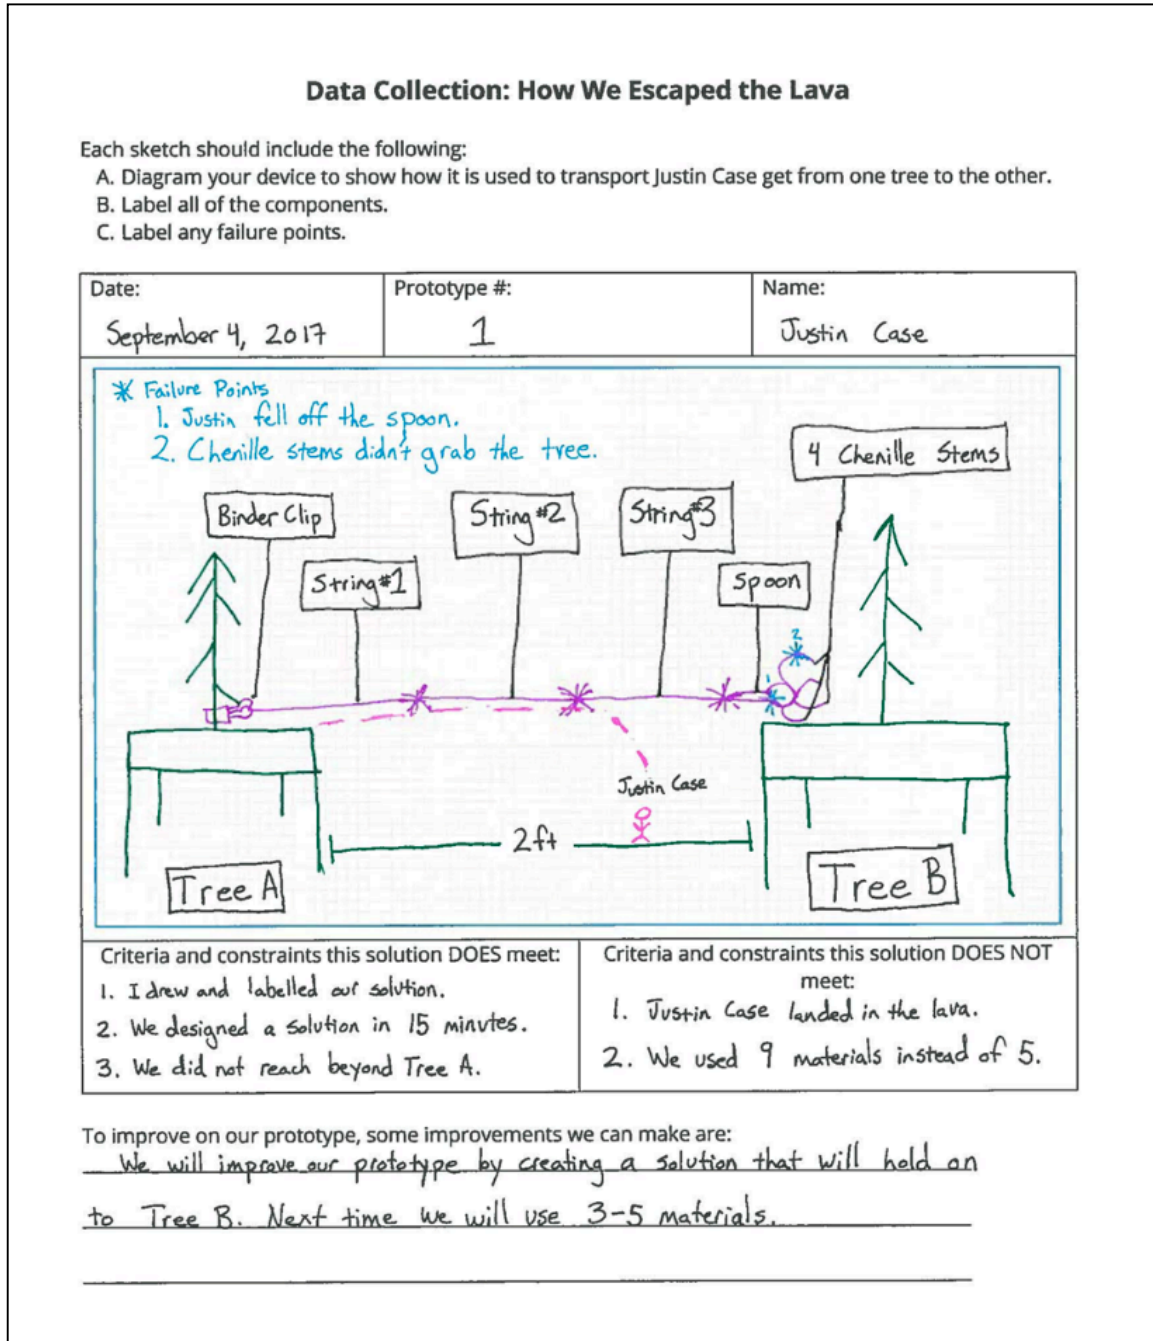 Data Collection: How We Escaped the Lava
Each sketch should include the following:
A. Diagram your device to show how it is used to transport Justin Case get from one tree to the other.
B. Label all of the components.
C. Label any failure points.
Date:
September 4, 2017
Prototype #:
1
Name:
Justin Case
* Failure Points
1. Justin fell off the spoon.
2. Chenille stems didn't grab the tree.
4 Chenille Stems
Binder Clip
String #1
String #2
String #3
Spoon
2
1
Justin Case
2ft
Tree A
Tree B
Criteria and constraints this solution DOES meet:
1. I drew and labelled our solution.
2. We designed a solution in 15 minutes.
3. We did not reach beyond Tree A.
Criteria and constraints this solution DOES NOT
meet:
1. Justin Case landed in the lava.
2. We used 9 materials instead of 5.
To improve on our prototype, some improvements we can make are:
We will improve our prototype by creating a solution that will hold on
to Tree B. Next time we will use 3-5 materials.